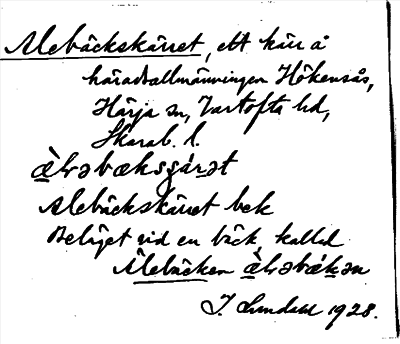 Alebäckskärret, ett kärr å
häradsallmänningen Hökensås,
Härja sn, Vartofta hd,
Skarab. l.
Alebäckskärret bek
Beläget vid en bäck, kallad
Alebäcken
J. Lundahl 1928.